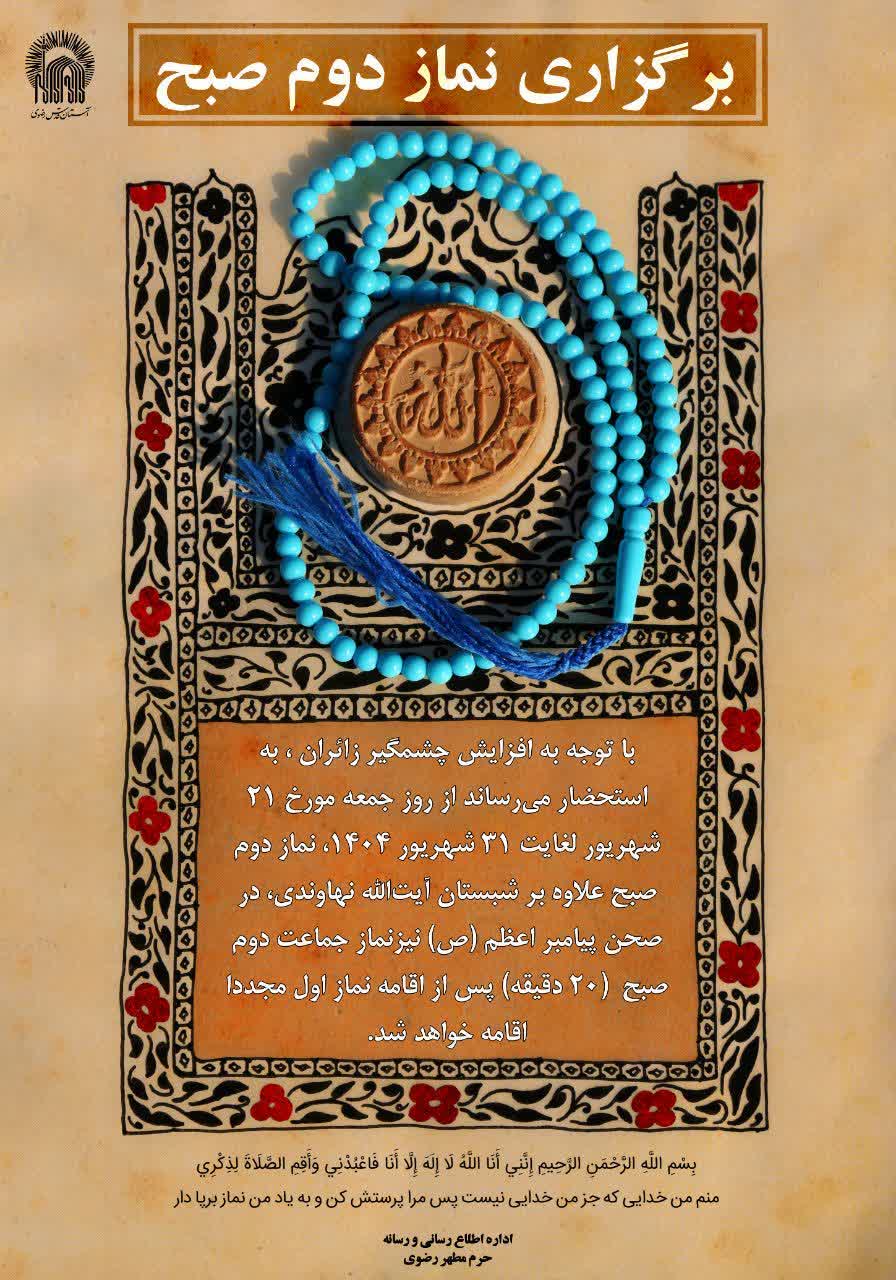 برگزاری نماز دوم صبح
آستان قدس رضوی
الله
با توجه به افزایش چشمگیر زائران ، به
استحضار می‌رساند از روز جمعه مورخ ۲۱
شهریور لغایت ۳۱ شهریور ۱۴۰۴، نماز دوم
صبح علاوه بر شبستان آیت‌الله نهاوندی، در
صحن پیامبر اعظم (ص) نیزنماز جماعت دوم
صبح (۲۰ دقیقه) پس از اقامه نماز اول مجددا
اقامه خواهد شد.
بِسْمِ اللَّهِ الرَّحْمَنِ الرَّحِيمِ إِنَّنِي أَنَا اللَّهُ لَا إِلَهَ إِلَّا أَنَا فَاعْبُدْنِي وَأَقِمِ الصَّلَاةَ لِذِكْرِي
منم من خدایی که جز من خدایی نیست پس مرا پرستش کن و به یاد من نماز برپا دار
اداره اطلاع رسانی و رسانه
حرم مطهر رضوی